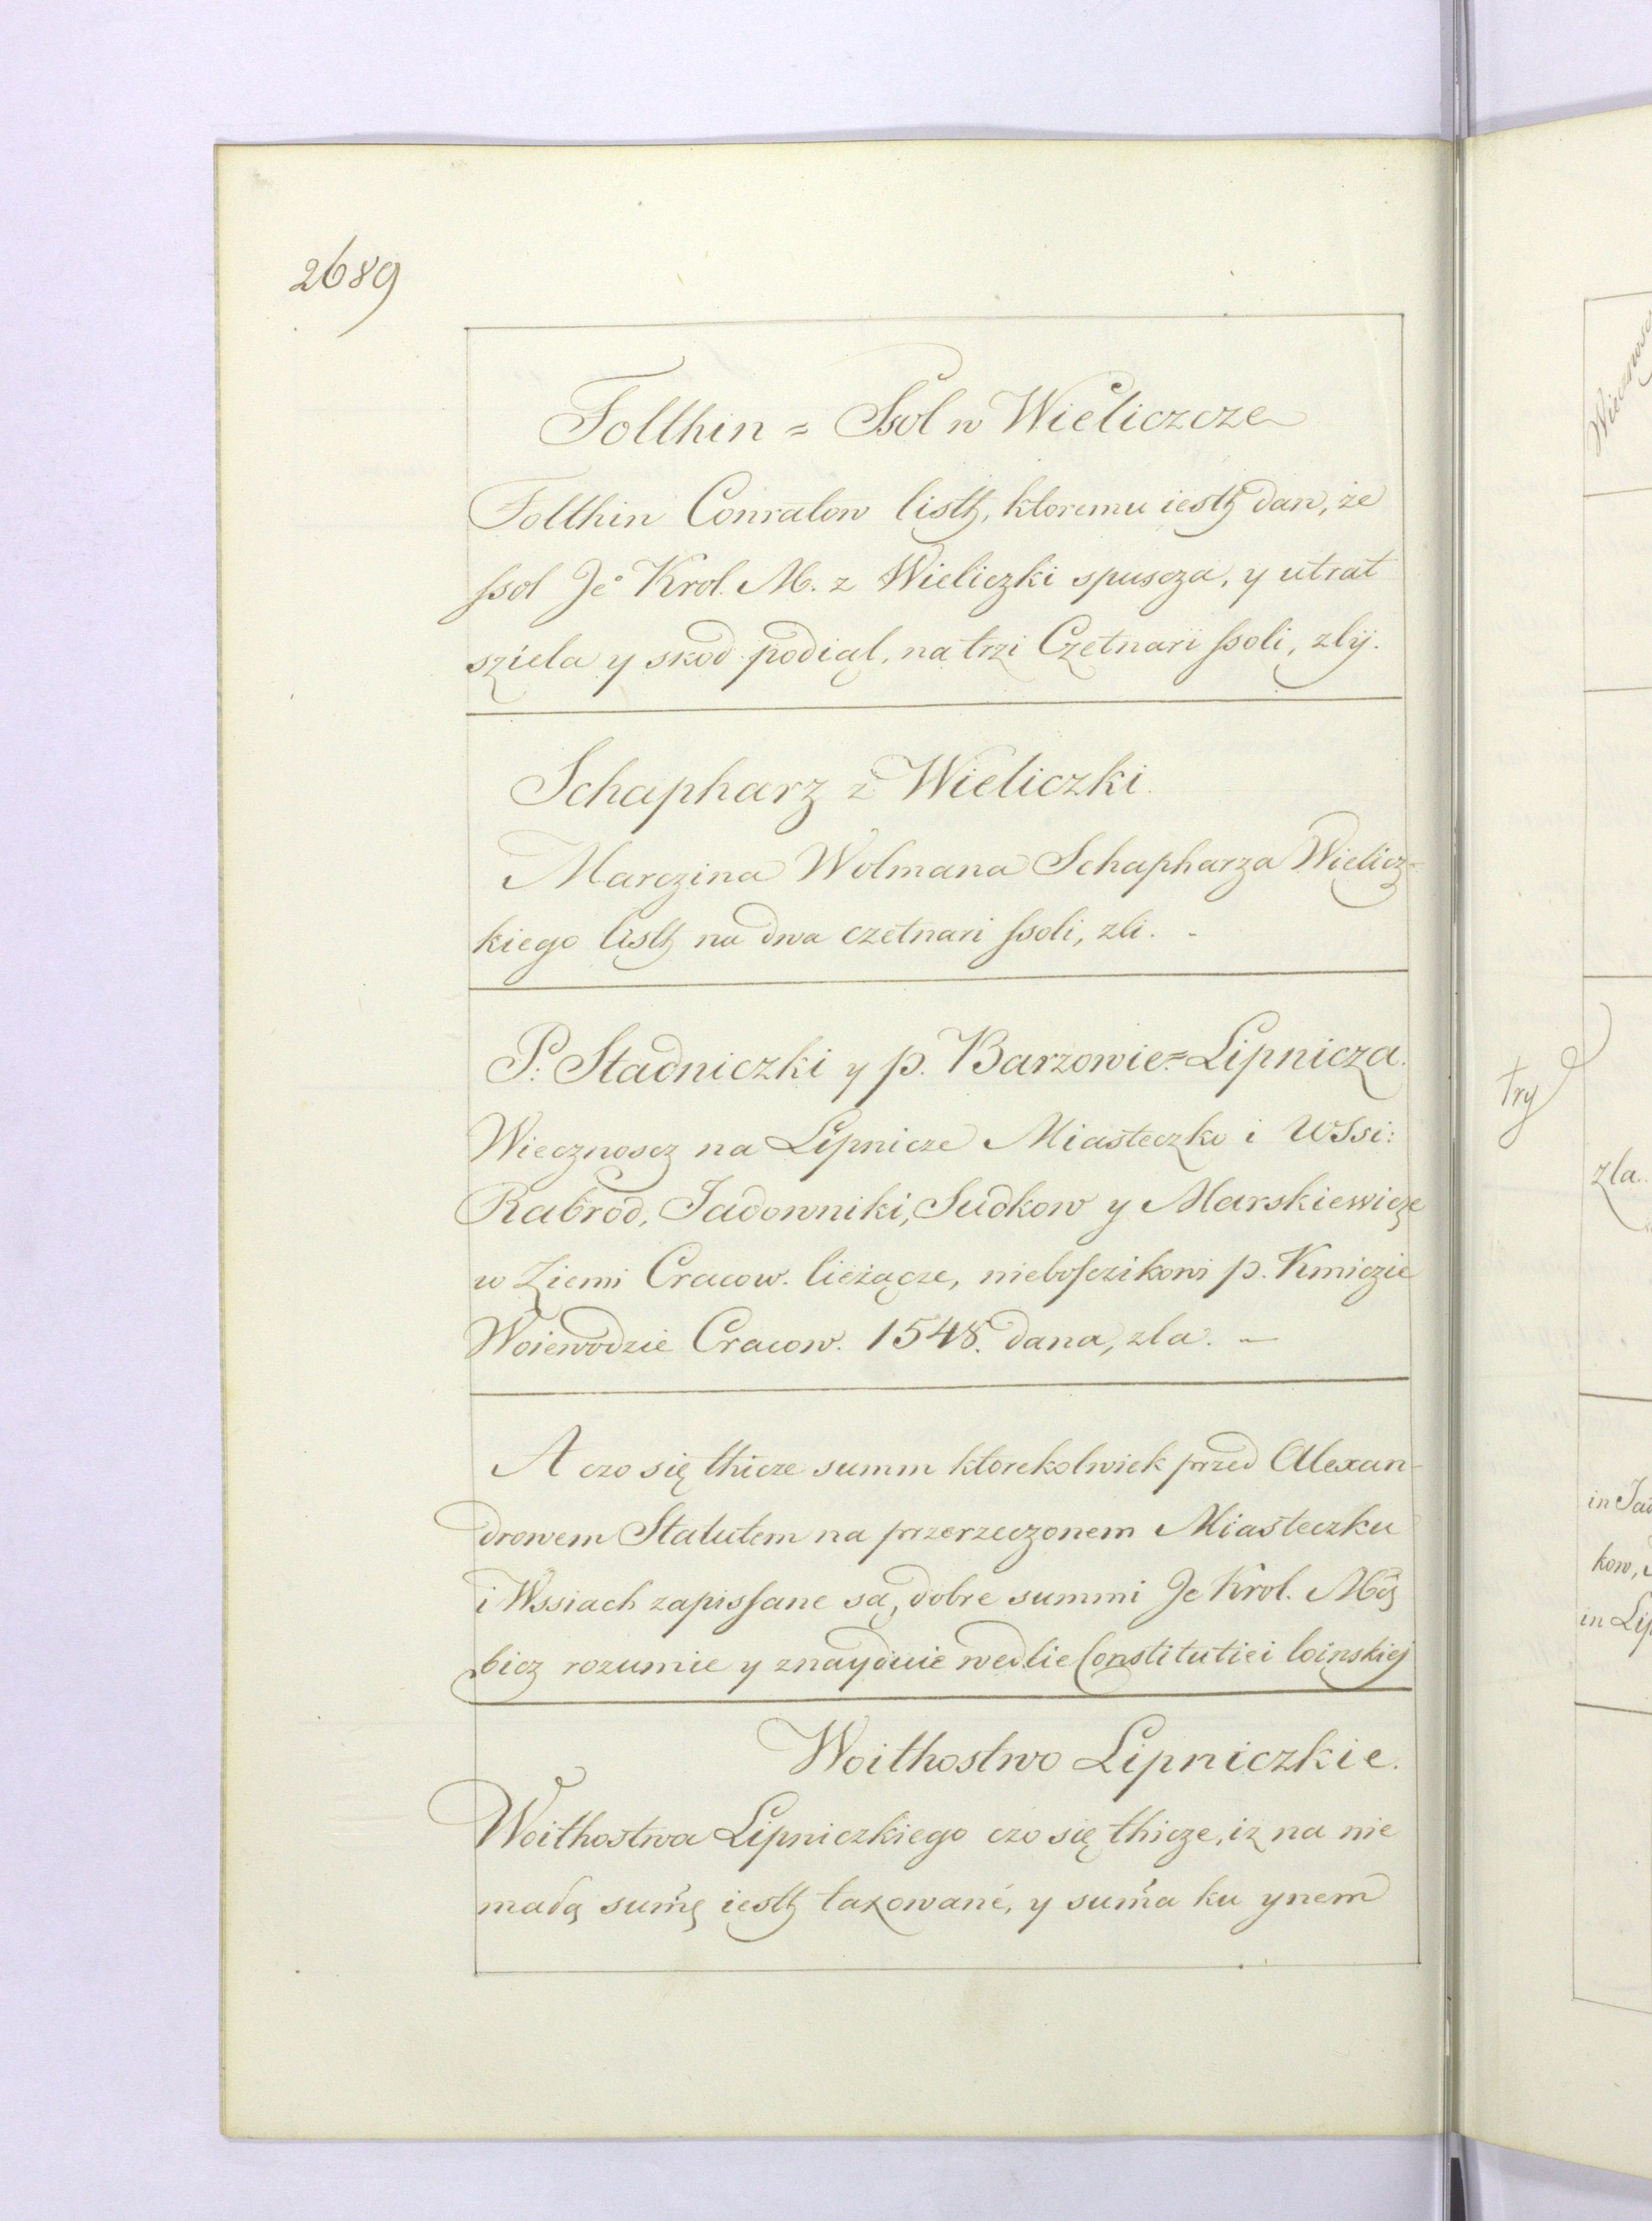 2689
Folthin = Ssol w Wieliczcze
Folthin Conratow listh, ktoremu iesth dan, że
ssol Je° Krol. M. z Wieliczki spuscza, y utrat
sziela y skod podiąl, na trzi Czetnari ssoli, zlÿ.
Schapharz z Wieliczki.
Marczina Wolmana Schapharza Wielicz-
kiego listh na dwa czetnari ssoli, zli. -
P: Stadniczki y p. Barzowie = Lipnicza.
Wiecznoscz na Lipnicze Miasteczko i Wssi:
Rabrod, Jadowniki, Sudkow y Marskiewicze
w Ziemi Cracow. lieżącze, niebosczikowi p. Kmiczie
Woiewodzie Cracow. 1548. dana, zla. -
A czo się thicze summ ktorekolwiek przed Alexan-
drowem Statutem na przerzeczonem Miasteczku
i Wssiach zapissane są, dobre summi Je Krol. Mcz
bicz rozumie y znayduie wedlie Constitutiei
Woithostwo Lipniczkie.
Woithostwa Lipniczkiego czo się thicze, iz na nie
madą sum̄ę iesth taxowané, y sum̄a ku ynem
try
zla.
in Jad
kow,
in Lip